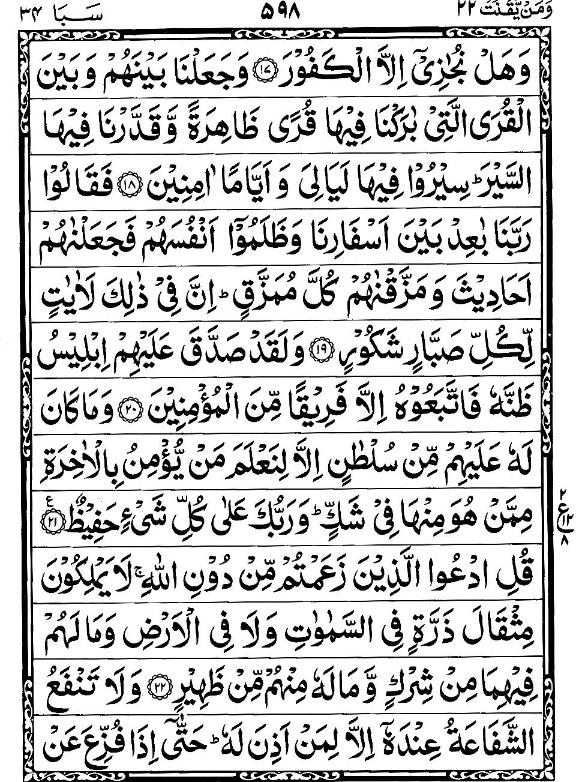 وَمَنْ يَّقْنُتْ ٢٢ ٥٩٨ سَبَا ٣٤
وَهَلْ نُجٰزِيْۤ اِلَّا الْكَفُوْرَ ﴿۱۷﴾ وَجَعَلْنَا بَيْنَهُمْ وَبَيْنَ
الْقُرَى الَّتِيْ بٰرَكْنَا فِيْهَا قُرًى ظَاهِرَةً وَّقَدَّرْنَا فِيْهَا
السَّيْرَ ؕ سِيْرُوْا فِيْهَا لَيَالِيَ وَ اَيَّامًا اٰمِنِيْنَ ﴿۱۸﴾ فَقَالُوْا
رَبَّنَا بٰعِدْ بَيْنَ اَسْفَارِنَا وَظَلَمُوْۤا اَنْفُسَهُمْ فَجَعَلْنٰهُمْ
اَحَادِيْثَ وَ مَزَّقْنٰهُمْ كُلَّ مُمَزَّقٍ ؕ اِنَّ فِيْ ذٰلِكَ لَاٰيٰتٍ
لِّكُلِّ صَبَّارٍ شَكُوْرٍ ﴿۱۹﴾ وَ لَقَدْ صَدَّقَ عَلَيْهِمْ اِبْلِيْسُ
ظَنَّهٗ فَاتَّبَعُوْهُ اِلَّا فَرِيْقًا مِّنَ الْمُؤْمِنِيْنَ ﴿۲۰﴾ وَ مَا كَانَ
لَهٗ عَلَيْهِمْ مِّنْ سُلْطٰنٍ اِلَّا لِنَعْلَمَ مَنْ يُّؤْمِنُ بِالْاٰخِرَةِ
مِمَّنْ هُوَ مِنْهَا فِيْ شَكٍّ ؕ وَرَبُّكَ عَلٰى كُلِّ شَيْءٍ حَفِيْظٌ ﴿۲۱﴾ ع
٢ ع ١٢ ٨
قُلِ ادْعُوا الَّذِيْنَ زَعَمْتُمْ مِّنْ دُوْنِ اللّٰهِ ۚ لَا يَمْلِكُوْنَ
مِثْقَالَ ذَرَّةٍ فِي السَّمٰوٰتِ وَلَا فِي الْاَرْضِ وَ مَا لَهُمْ
فِيْهِمَا مِنْ شِرْكٍ وَّ مَا لَهٗ مِنْهُمْ مِّنْ ظَهِيْرٍ ﴿۲۲﴾ وَلَا تَنْفَعُ
الشَّفَاعَةُ عِنْدَهٗۤ اِلَّا لِمَنْ اَذِنَ لَهٗ ؕ حَتّٰۤى اِذَا فُزِّعَ عَنْ